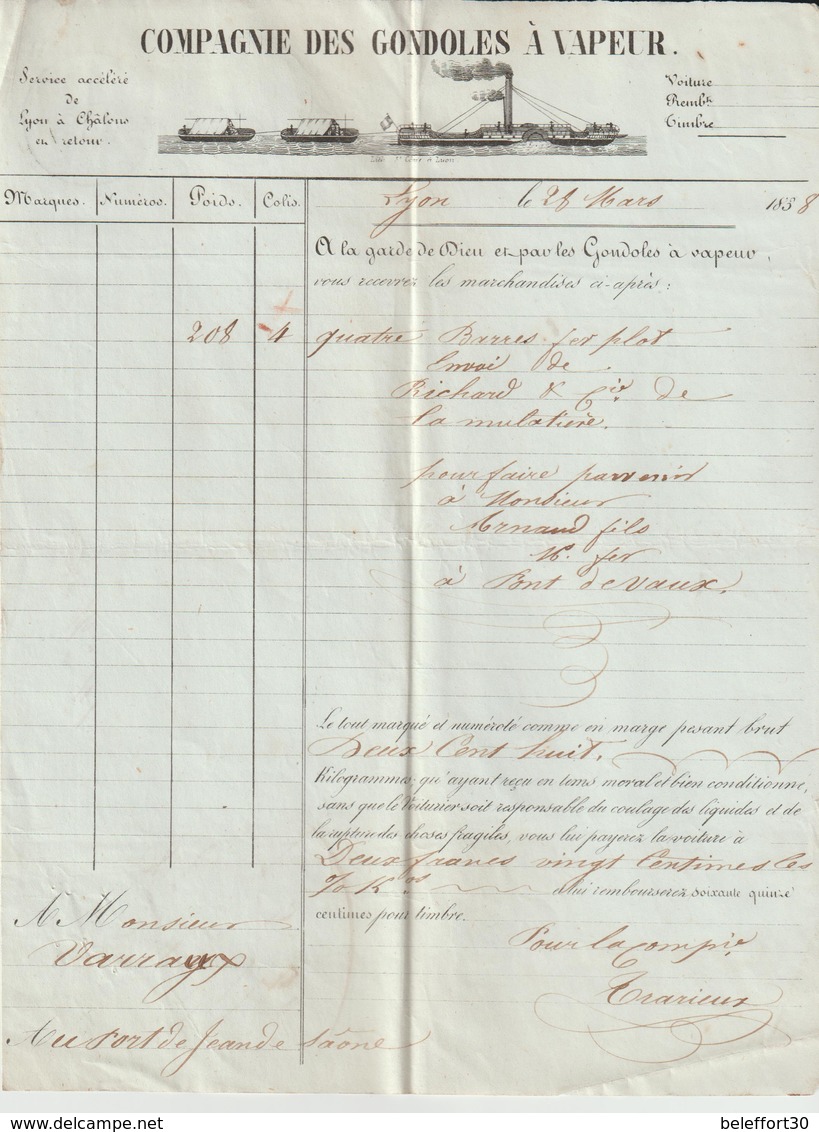 COMPAGNIE DES GONDOLES À VAPEUR.
Service accéléré
de
Lyon à Châlons
en retour.
Voiture
Rembt.
Timbre
Marques. Numéros. Poids. Colis.
Lyon le 28 Mars 1838
A la garde de Dieu et par les Gondoles à vapeur,
vous recevrez les marchandises ci-après:
208 4 quatre Barres fer plat
Envoi de
Richard & Cie. de
la mulatière.
pour faire parvenir
à Monsieur
Arnaud fils
Md. fer
à Pont de Vaux.
Le tout marqué et numéroté comme en marge pesant brut
Deux Cent huit.
Kilogrammes; qu'ayant reçu en tems moral et bien conditionné,
sans que le Voiturier soit responsable du coulage des liquides et de
la rupture des choses fragiles, vous lui payerez la voiture à
Deux francs vingt Centimes les
% Kos
et lui rembourserez soixante quinze
centimes pour timbre.
Pour la compie.
Trarieux
A Monsieur
Varraux
Au Port de Jean de Saône
beleffort30